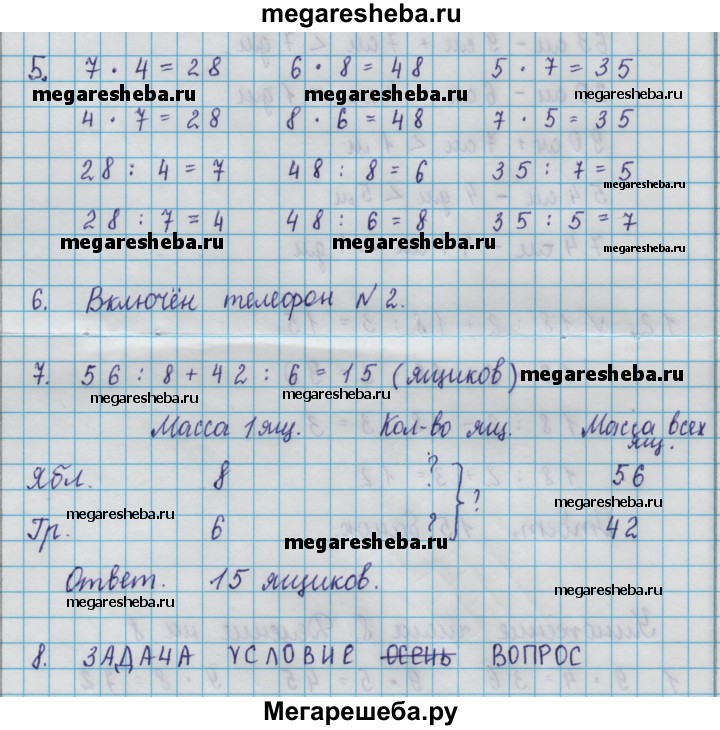 megaresheba.ru
5. 7 · 4 = 28 6 · 8 = 48 5 · 7 = 35
megaresheba.ru megaresheba.ru megaresheba.ru
4 · 7 = 28 8 · 6 = 48 7 · 5 = 35
28 : 4 = 7 48 : 8 = 6 35 : 7 = 5
megaresheba.ru
28 : 7 = 4 48 : 6 = 8 35 : 5 = 7
megaresheba.ru megaresheba.ru megaresheba.ru
6. Включён телефон N 2.
7. 56 : 8 + 42 : 6 = 15 (ящиков) megaresheba.ru
megaresheba.ru megaresheba.ru
Масса 1 ящ. Кол-во ящ. Масса всех ящ.
Ябл. 8 ? 56
?
megaresheba.ru megaresheba.ru
Гр. 6 ? 42
megaresheba.ru
Ответ. 15 ящиков.
megaresheba.ru megaresheba.ru
8. ЗАДАЧА УСЛОВИЕ ОСЕНЬ ВОПРОС
Мегарешеба.ру